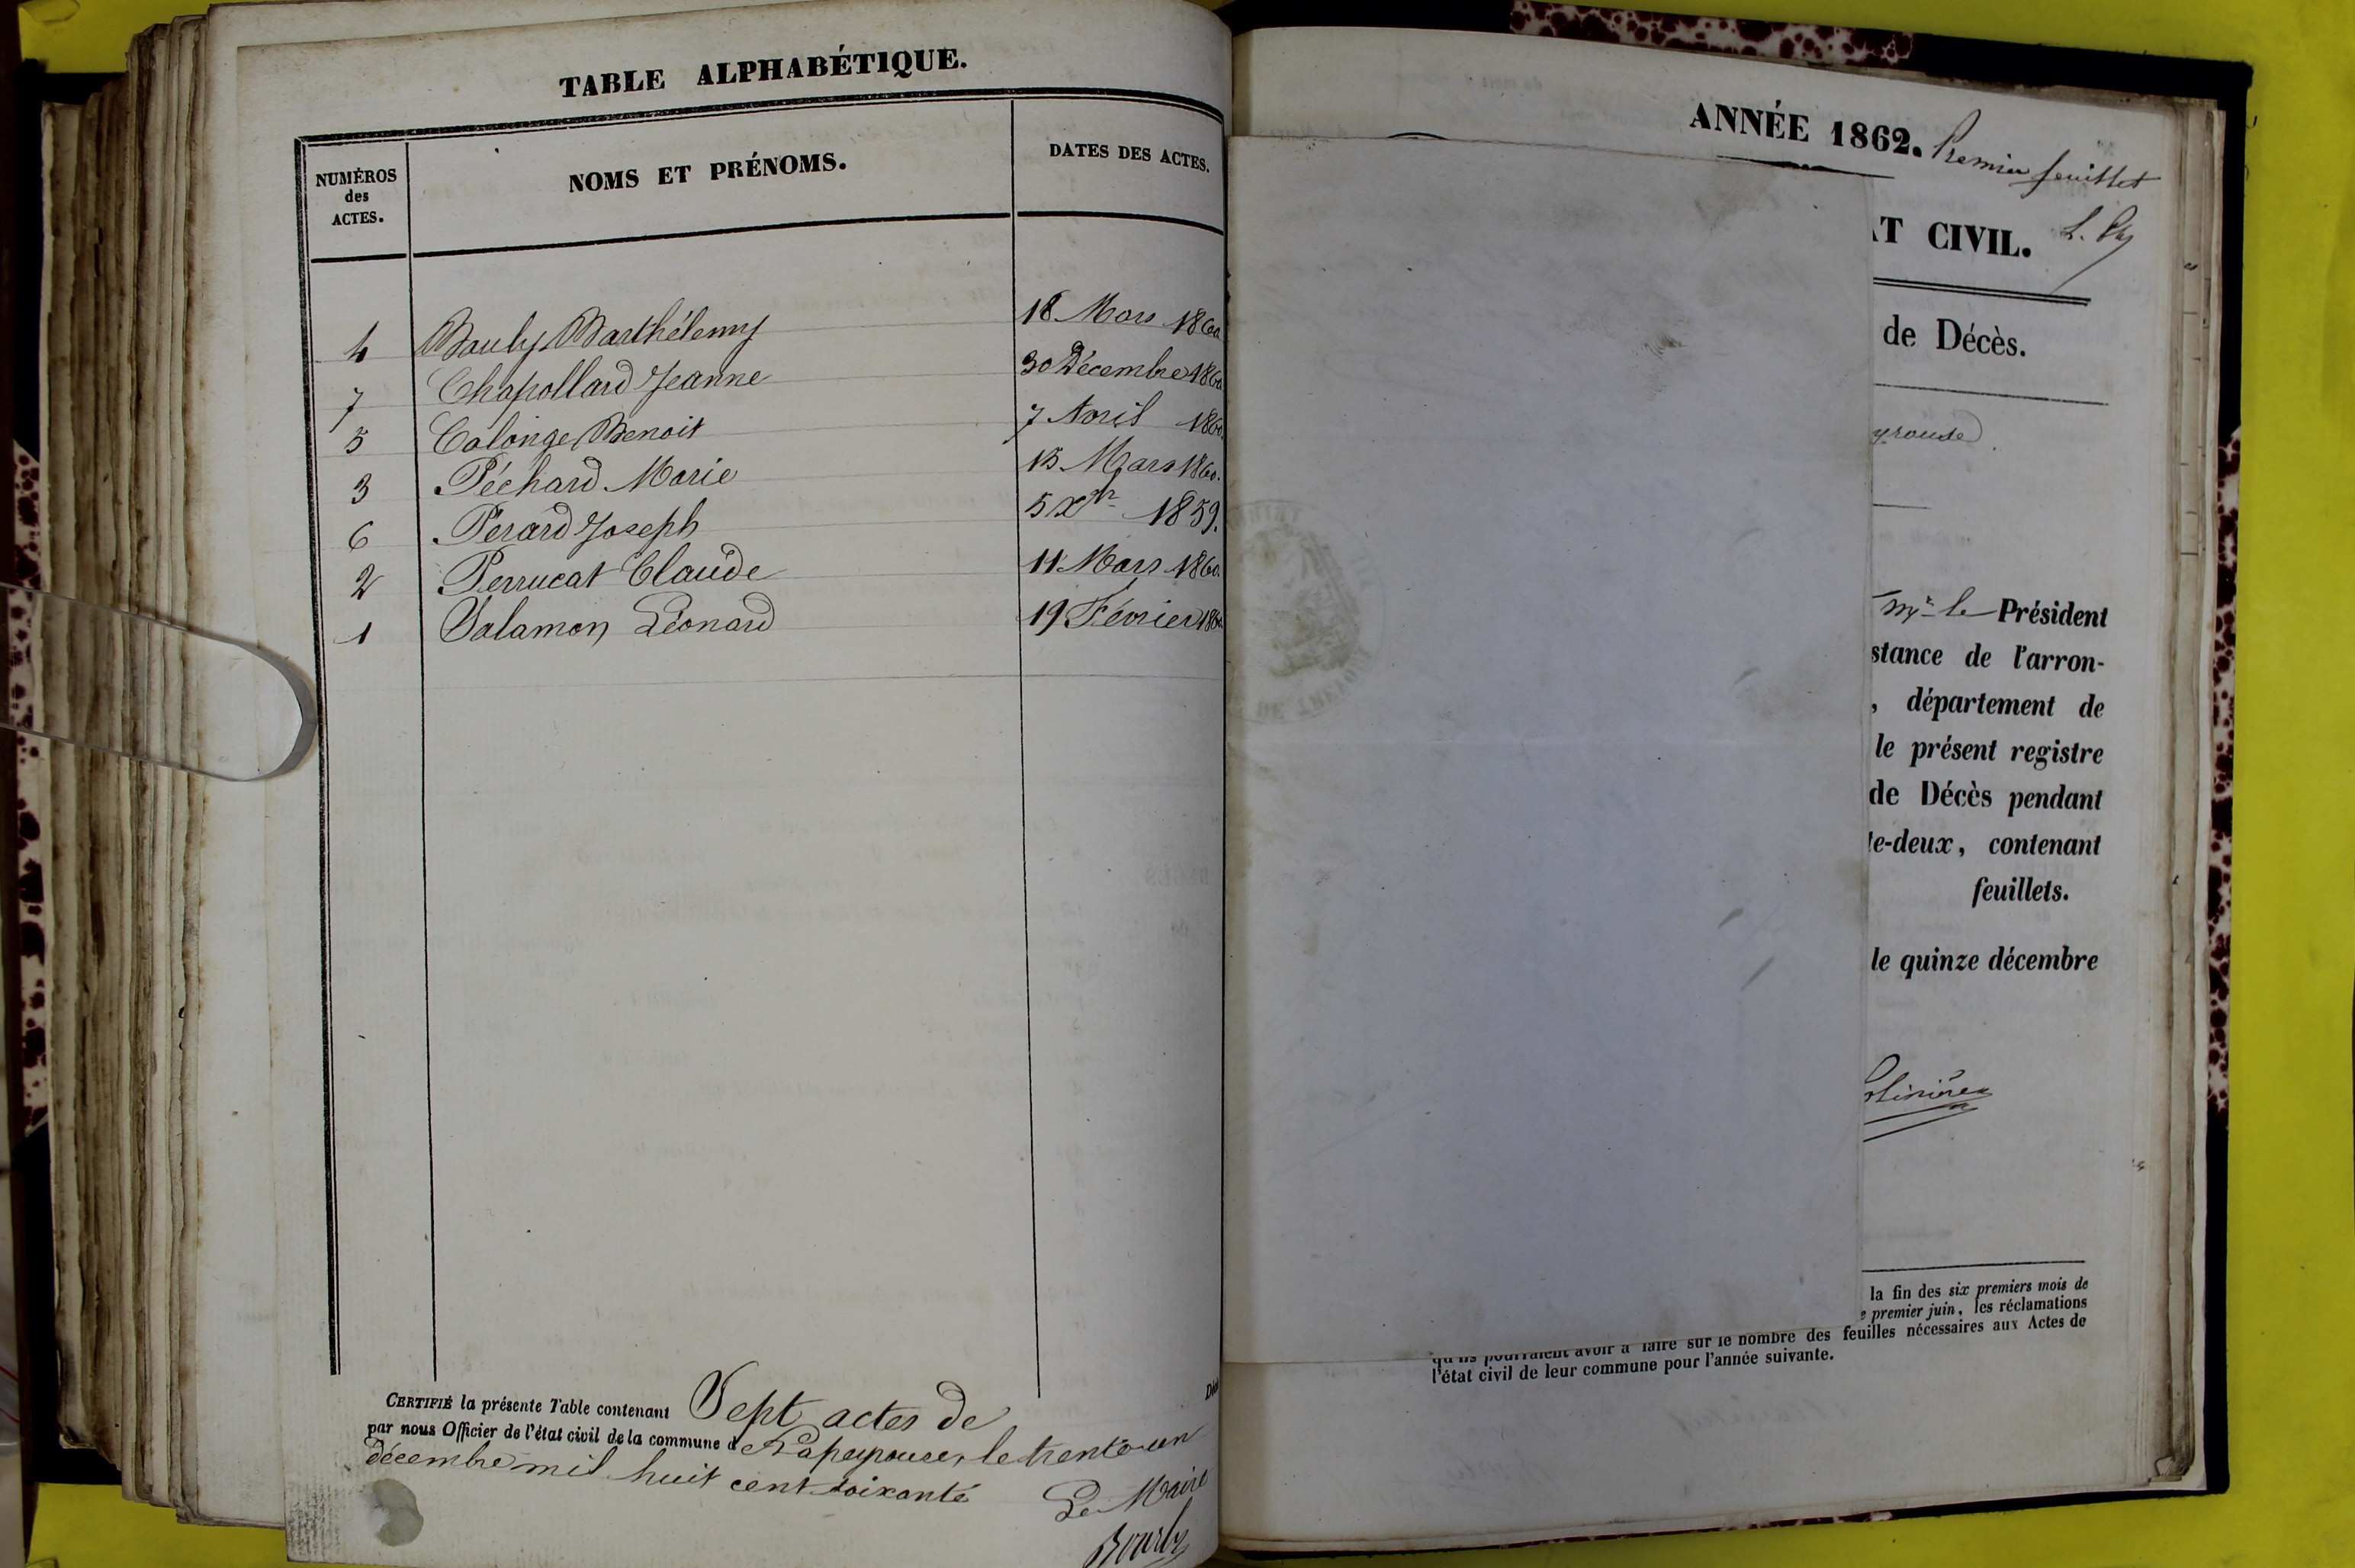 TABLE ALPHABÉTIQUE.
NUMÉROS
des
ACTES.
NOMS ET PRÉNOMS.
DATES DES ACTES.
4 Bouly Barthélemy 18 Mars 1860
7 Chapollard Jeanne 30 Décembre 1860
5 Colonge Benoit 7 Avril 1860.
3 Péchard Marie 13 Mars 1860.
6 Perard Joseph 5 Xbre 1859.
2 Perrucat Claude 11 Mars 1860.
1 Salamon Léonard 19 Février 1860
CERTIFIÉ la présente Table contenant Sept actes de Déc
par nous Officier de l'état civil de la commune de Lapeyrouse, le trente-un
décembre mil huit cent soixante
Le Maire
Bouly
ANNÉE 1862. Premier feuillet
AT CIVIL.
de Décès.
yrouse
Mr le Président
stance de l'arron-
, département de
le présent registre
de Décès pendant
te-deux, contenant
feuillets.
le quinze décembre
la fin des six premiers mois de
e premier juin, les réclamations
qu'ils pourraient avoir à faire sur le nombre des feuilles nécessaires aux Actes de
l'état civil de leur commune pour l'année suivante.